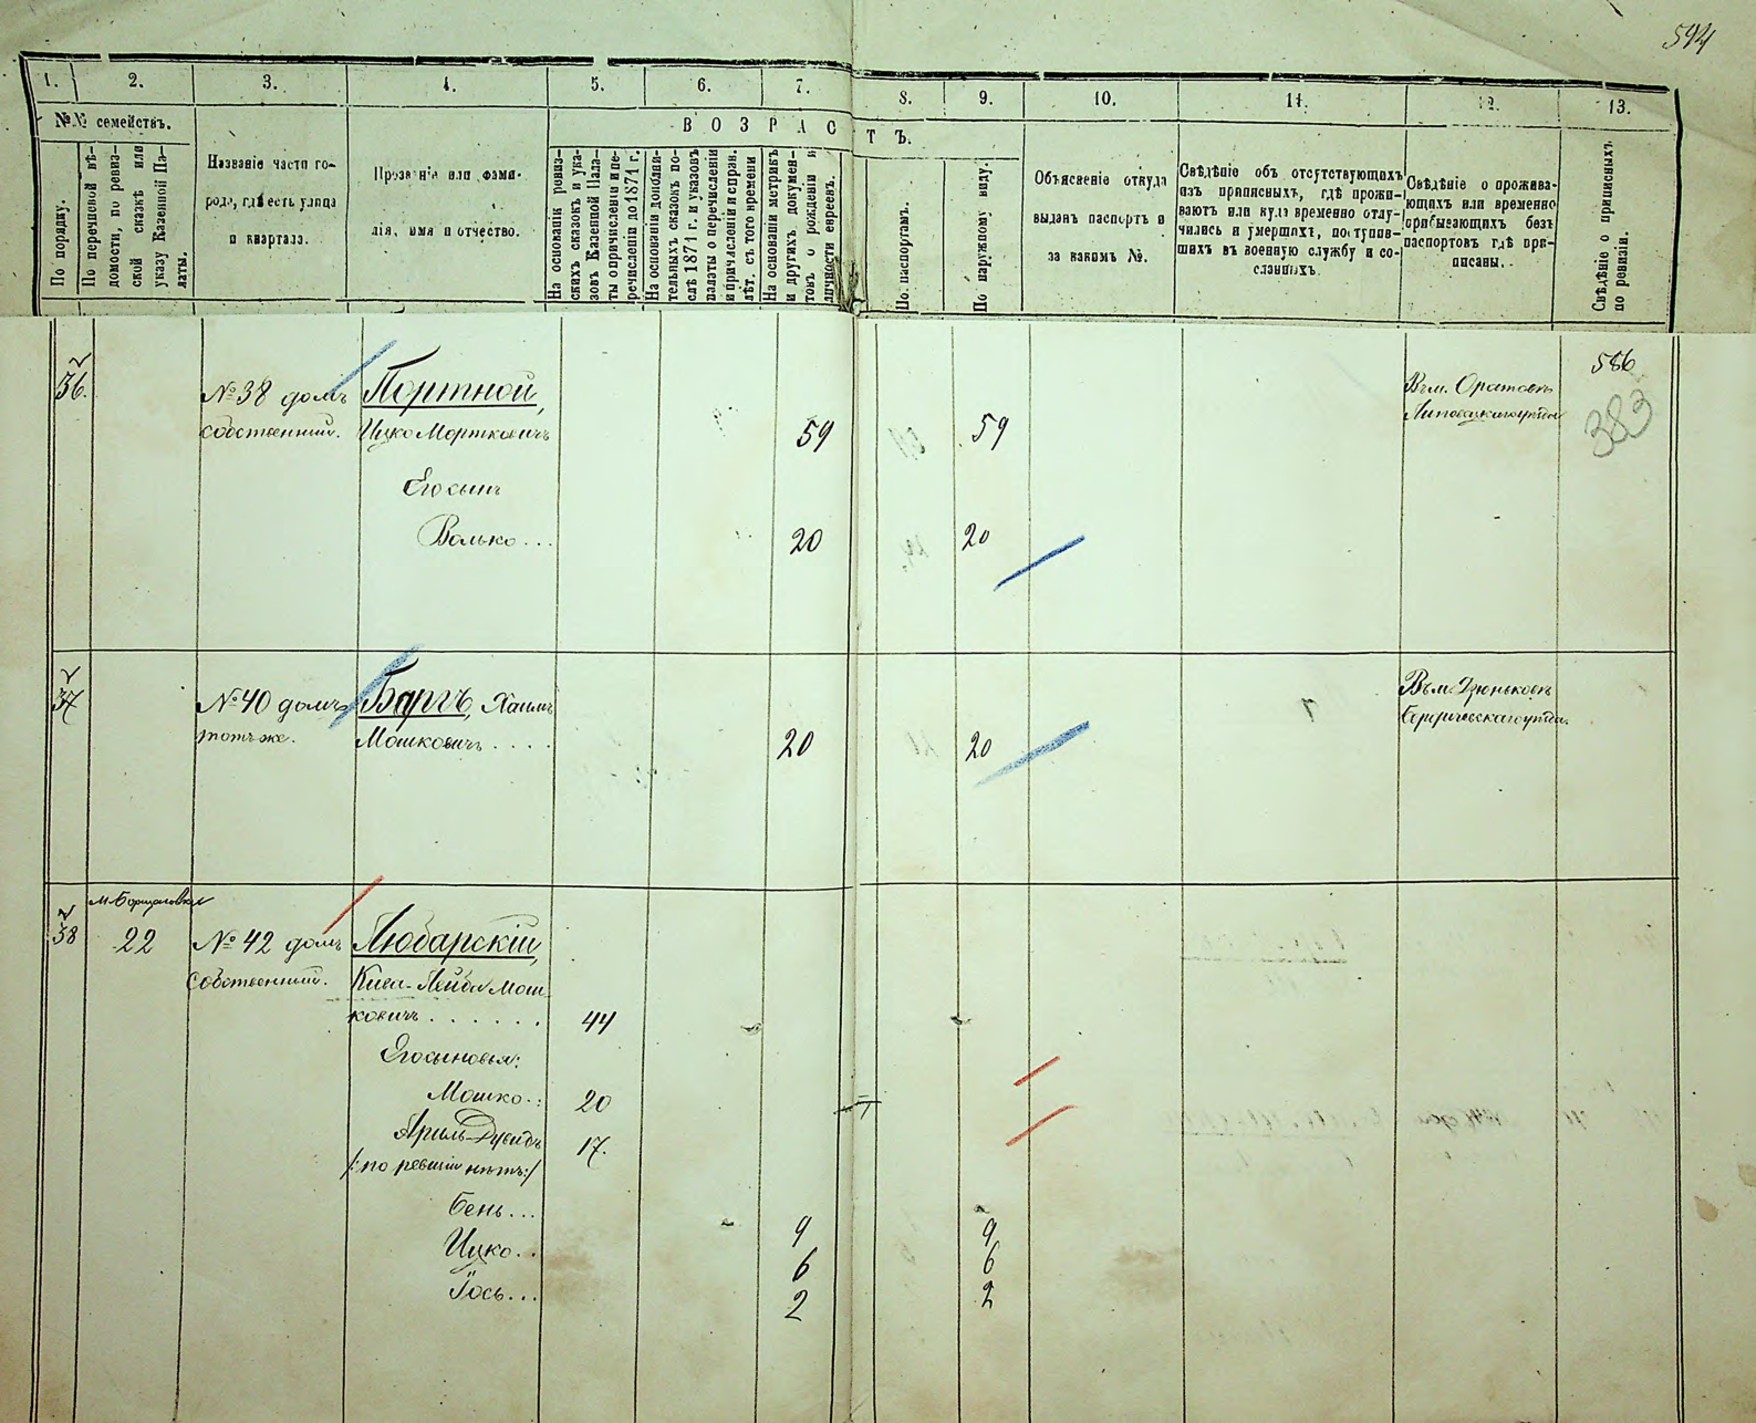 594
1. 2. 3. 4. 5. 6. 7. 8. 9. 10. 11. 12. 13.
№№ семействъ.
По порядку.
По перечневой вѣ-
домости, по ревиз-
ской сказкѣ или
указу Казенной Па-
латы.
Названіе части го-
рода, гдѣ есть улица
и квартала.
Прозваніе или фами-
лія, имя и отчество.
ВОЗРАСТЪ.
На основаніи ревиз-
скихъ сказокъ и ука-
зовъ Казенной Пала-
ты о причисленіи и пе-
речисленіи до 1871 г.
На основаніи дополни-
тельныхъ сказокъ по-
слѣ 1871 г. и указовъ
палаты о перечисленіи
и причисленіи и справ.
лѣт. съ того времени
На основаніи метрикъ
и другихъ докумен-
товъ о рожденіи и
личности евреевъ.
По паспортамъ.
По наружному виду.
Объясненіе откуда
выданъ паспортъ и
за какимъ №.
Свѣдѣніе объ отсутствующихъ
изъ приписныхъ, гдѣ прожи-
ваютъ или куда временно отлу-
чились и умершихъ, поступив-
шихъ въ военную службу и со-
сланныхъ.
Свѣдѣніе о прожива-
ющихъ или временно
прибывающихъ безъ
паспортовъ гдѣ при-
писаны.
Свѣдѣніе о приписныхъ
по ревизіи.
36.
№ 38 домъ
собственный.
Портной,
Ицко Мортковичъ
59 59
Въ м. Оратовъ
Липовецкаго уѣзда
586
383
Его сынъ
Волько... 20 20
37
№ 40 домъ
тотъ же.
Баргъ, Хаимъ
Мошковичъ.... 20 20
Въ м. Дзюньковъ
Бердическаго уѣзда.
38
22
№ 42 домъ
собственный.
Любарскій,
Лейба Мош-
ковичъ...... 44
Его сыновья:
Мошко.. 20
Ариль-Дувидъ 17.
/:по ревизіи нѣтъ:/
Бень... 9 9
Ицко.. 6 6
Іось... 2 2